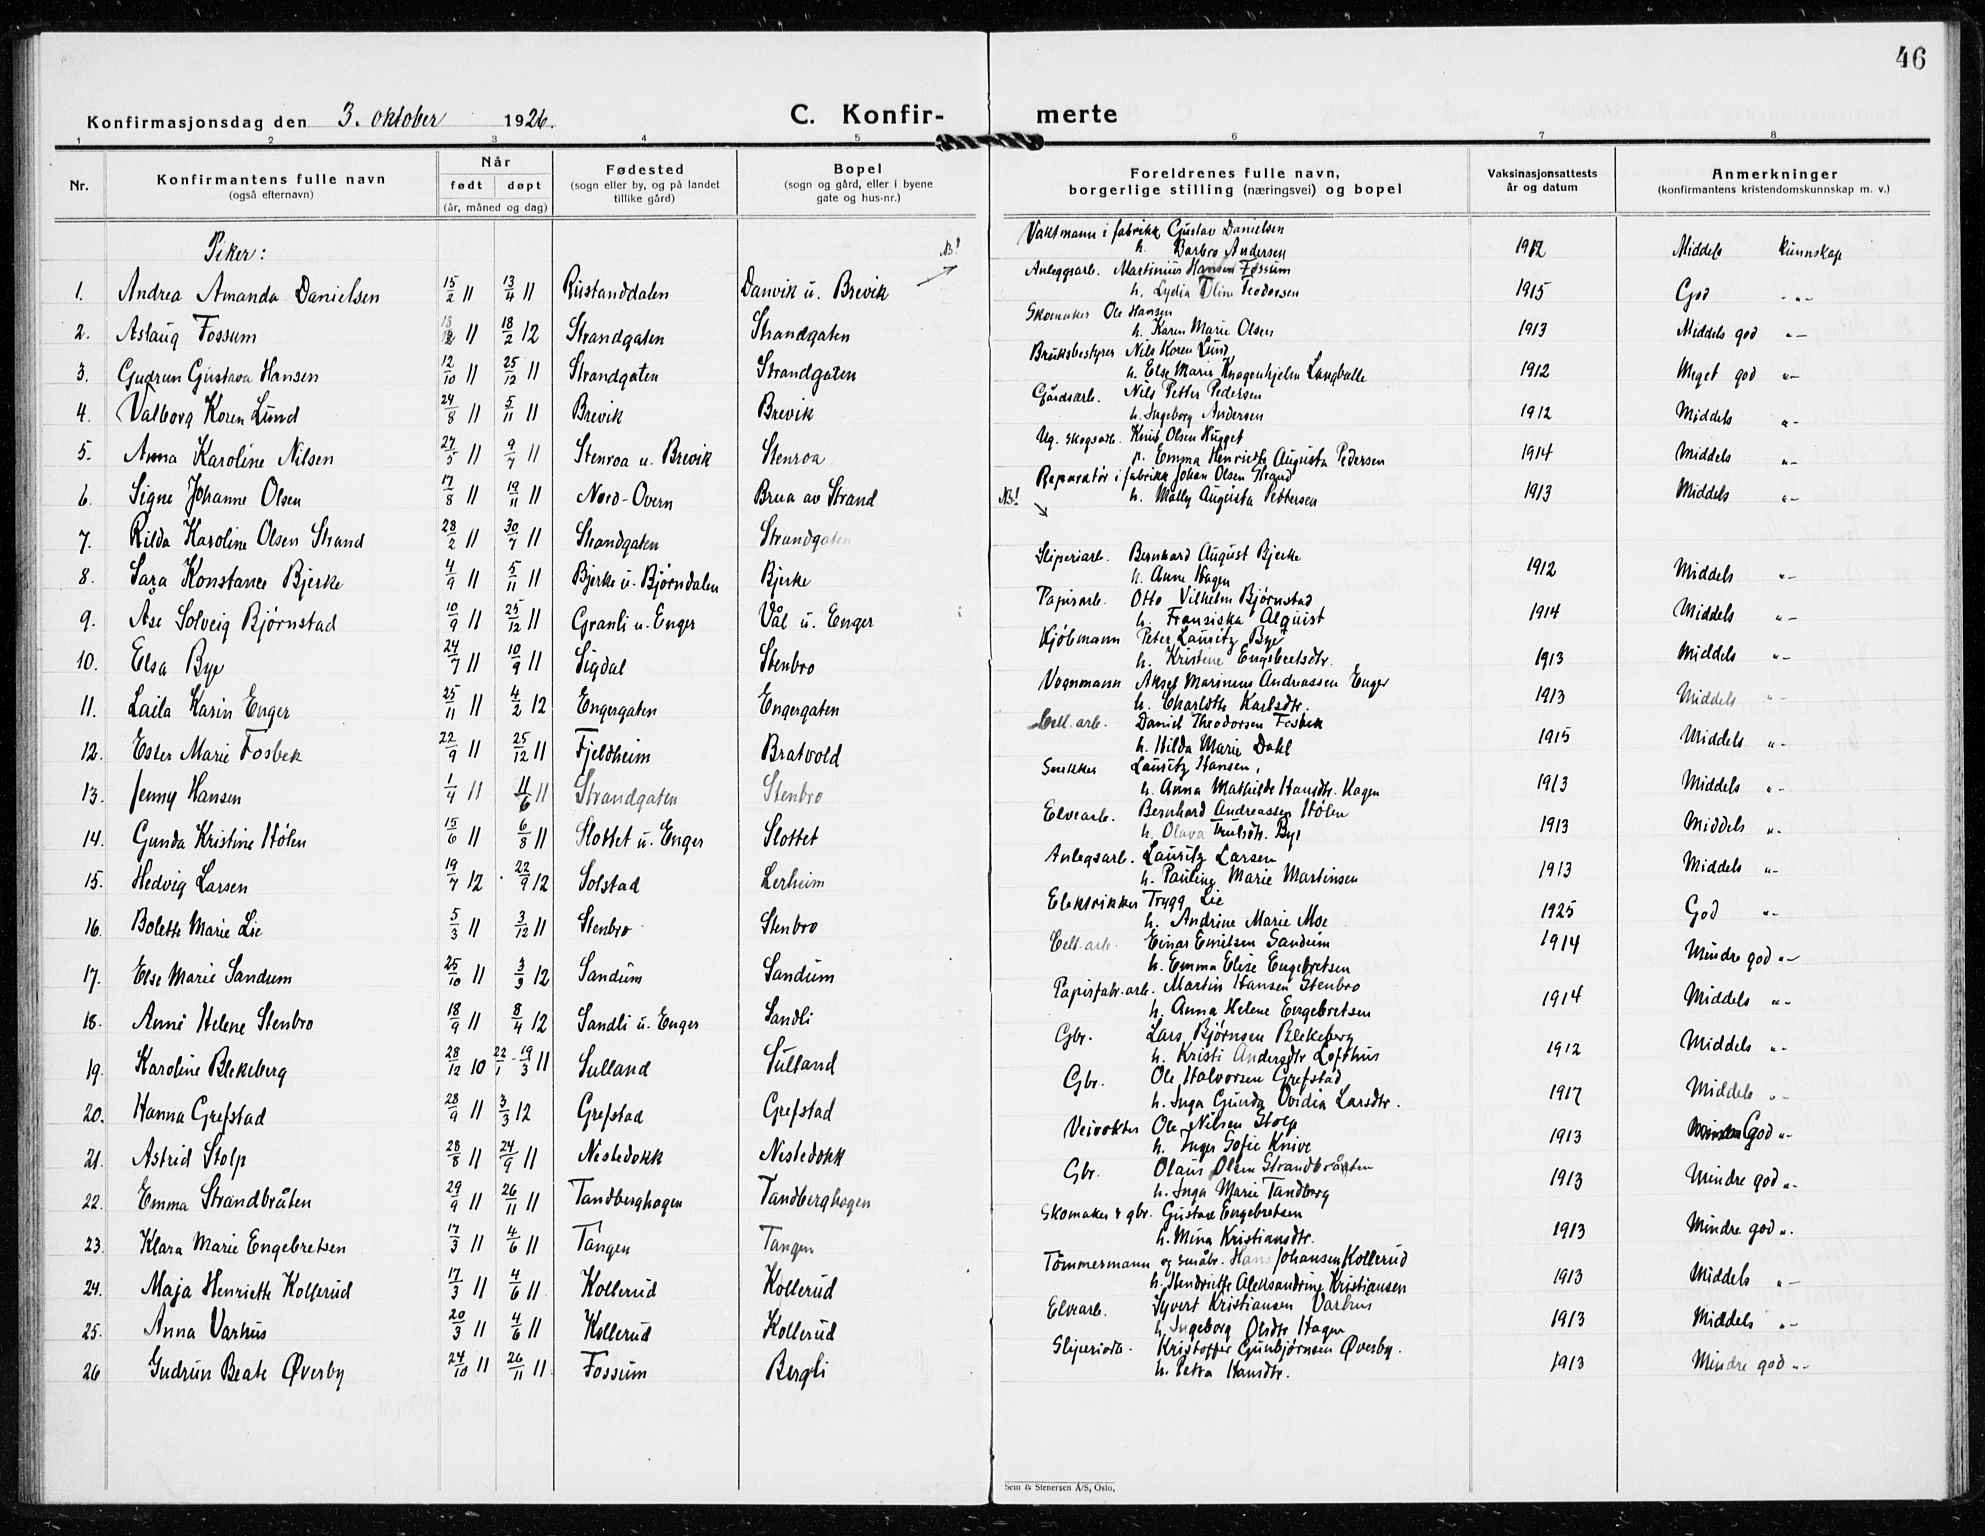 46
Konfirmasjonsdag den 3. oktober 1926. C. Konfir- merte
1 2 3 4 5 6 7 8
Nr. Konfirmantens fulle navn (også efternavn) Når født døpt (år, måned og dag) Fødested (sogn eller by, og på landet tillike gård) Bopel (sogn og gård, eller i byene gate og hus-nr.) Foreldrenes fulle navn, borgerlige stilling (næringsvei) og bopel Vaksinasjonsattests år og datum Anmerkninger (konfirmantens kristendomskunnskap m. v.)
Piker: NB!
1. Andrea Amanda Danielsen 15/2 11 13/4 11 Rustanddalen Danvik u. Brevik Vaktmann i fabrikk Gustav Danielsen h. Barbro Andersen 1912 Middels kunnskap
2. Aslaug Fossum 11 18/2 12 Strandgaten Strandgaten Anleggsarb. Martinius Hansen Fossum h. Lydia Oline Teodorsen 1915 God -"-
3. Gudrun Gustava Hansen 12/10 11 25/12 11 Strandgaten Strandgaten Skomaker Ole Hansen h. Karen Marie Olsen 1913 Middels god "-
4. Valborg Koren Lund 24/8 11 5/11 11 Brevik Brevik Bruksbestyrer Nils Koren Lund h. Else Marie Knagenhjelm Langballe 1912 Meget god "-
5. Anna Karoline Nilsen 27/5 11 9/7 11 Stenroa u. Brevik Stenroa Gårdsarb. Nils Petter Pedersen h. Ingeborg Andersen 1912 Middels "-
6. Signe Johanne Olsen 17/8 11 19/11 11 Nord-Overn Brua av Strand Ug. skogsarb. Knut Olsen Hugget p. Emma Henriette Augusta Pedersen 1914 Middels "-
7. Rilda Karoline Olsen Strand 28/2 11 30/7 11 Strandgaten Strandgaten NB! Reparatør i fabrikk Johan Olsen Strand h. Molly Augusta Pettersen 1913 Middels "-
8. Sara Konstance Bjerke 4/9 11 5/11 11 Bjerke u. Bjørndalen Bjerke Sliperiarb. Bernhard August Bjerke h. Anne Hagen 1912 Middels "-
9. Åse Solveig Bjørnstad 10/9 11 25/12 11 Granli u. Enger Vål u. Enger Papirarb. Otto Vilhelm Bjørnstad h. Fransiska Alquist 1914 Middels "-
10. Elsa Bye 24/7 11 10/9 11 Sigdal Stenbro Kjøbmann Peter Lauritz Bye h. Kristine Engebretsdtr. 1913 Middels "-
11. Laila Karin Enger 25/11 11 4/2 12 Engergaten Engergaten Vognmann Aksel Marinius Andreassen Enger h. Charlotte Karlsdtr. 1913 Middels "-
12. Ester Marie Fosbek 22/9 11 25/12 11 Fjeldheim Bratvold Cell. arb. Daniel Theodorsen Fosbek h. Hilda Marie Dahl 1915 Middels "-
13. Jenny Hansen 1/4 11 11/6 11 Strandgaten Stenbro Snekker Lauritz Hansen, h. Anna Mathilde Hansdtr. Hagen 1913 Middels "-
14. Gunda Kristine Hølen 15/6 11 6/8 11 Slottet u. Enger Slottet Elvearb. Bernhard Andreassen Hølen h. Olava Trulsdtr. Bye 1913 Middels "-
15. Hedvig Larsen 19/7 12 22/9 12 Solstad Lerheim Anlegsarb. Lauritz Larsen h. Pauline Marie Martinsen 1913 Middels "-
16. Bolette Marie Lie 5/3 11 3/12 11 Stenbro Stenbro Elektrikker Trygg Lie h. Andrine Marie Moe 1925 God "-
17. Else Marie Sandum 25/10 11 3/3 12 Sandum Sandum Cell. arb. Einar Emilsen Sandum h. Emma Elise Engebretsen 1914 Mindre god "-
18. Anni Helene Stenbro 18/9 11 8/4 12 Sandli u. Enger Sandli Papirfabr. arb. Martin Hansen Stenbro h. Anna Helene Engebretsen 1914 Middels "-
19. Karoline Blekeberg 28/12 10 22/1 - 19/3 11 Sulland Sulland Gbr. Lars Bjørnsen Blekeberg h. Kristi Andersdtr Lofthus 1912 Middels "-
20. Hanna Grefstad 28/9 11 3/3 12 Grefstad Grefstad Gbr. Ole Halvorsen Grefstad h. Inga Gunda Ovidia Larsdtr. 1917 Middels "-
21. Astrid Stolp 28/8 11 24/9 11 Nestedokk Nestedokk Veivokter Ole Nilsen Stolp h. Inger Sofie Knive 1913 God "-
22. Emma Strandbråten 29/9 11 26/11 11 Tandberghagen Tandberghagen Gbr. Olaus Olsen Strandbråten h. Inga Marie Tandberg 1913 Mindre god "-
23. Klara Marie Engebretsen 17/3 11 4/6 11 Tangen Tangen Skomaker & gbr. Gustav Engebretsen h. Mina Kristiansdtr. 1913 Mindre god "-
24. Maja Henriette Kollerud 17/3 11 4/6 11 Kollerud Kollerud Tømmermann og småbr. Hans Johansen Kollerud h. Hendriette Aleksandrine Kristiansen 1913 Middels "-
25. Anna Varhus 20/3 11 4/6 11 Kollerud Kollerud Elvearb. Syvert Kristiansen Varhus h. Ingeborg Olsdtr Hagen 1913 Middels "-
26 Gudrun Beate Øverby 24/10 11 26/11 11 Fossum Bergli Sliperiarb. Kristoffer Gunbjørnsen Øverby. h. Petra Hansdtr. 1913 Mindre god "-
Sem & Stenersen A/S, Oslo.